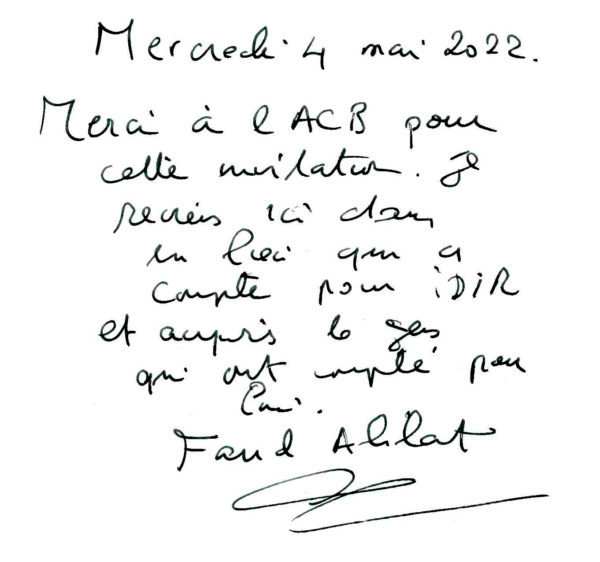 Mercredi 4 mai 2022.
Merci à l'ACB pour
cette invitation. Je
reviens ici dans
un lieu qui a
compté pour iDiR
et auprès de gens
qui ont compté pour
lui.
Farid Alilat